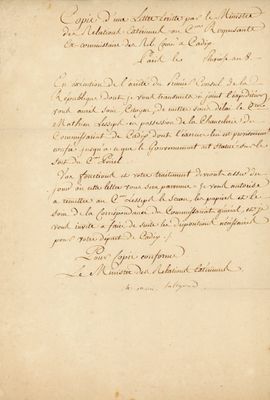 Copie d'une Lettre écrite par le Ministre
des Relations Extérieures au Cen
Ex-commissaire des Rel. Com. à Cadix
Paris les an 8.
En exécution de l'arrêté du Premier Consul de la
République dont je vous transmets ci joint l'expédition
vous aurez soin, Citoyen, de mettre sans délai le Cen
Mathieu Lesseps en possession de la Chancelerie du
Commissariat de Cadix dont l'exercice lui est provisoirement
confié jusqu'à ce que le Gouvernement ait statué sur le
sort du Cen
Vos fonctions et votre traitement devront cesser du
jour où cette lettre vous sera parvenue. Je vous autorise
à remettre au Cen Lesseps le sceau, les papiers et le
soin de la Correspondance du Commissariat général, et je
vous invite à faire de suite les dispositions nécessaires
pour votre départ de Cadix ./.
Pour Copie conforme
Le Ministre des Relations Extérieures